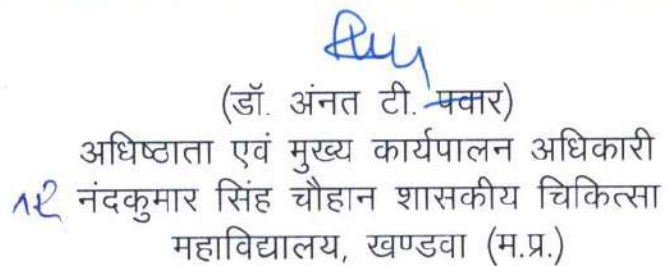 (डॉ. अंनत टी. पवार)
अधिष्ठाता एवं मुख्य कार्यपालन अधिकारी
नंदकुमार सिंह चौहान शासकीय चिकित्सा
महाविद्यालय, खण्डवा (म.प्र.)